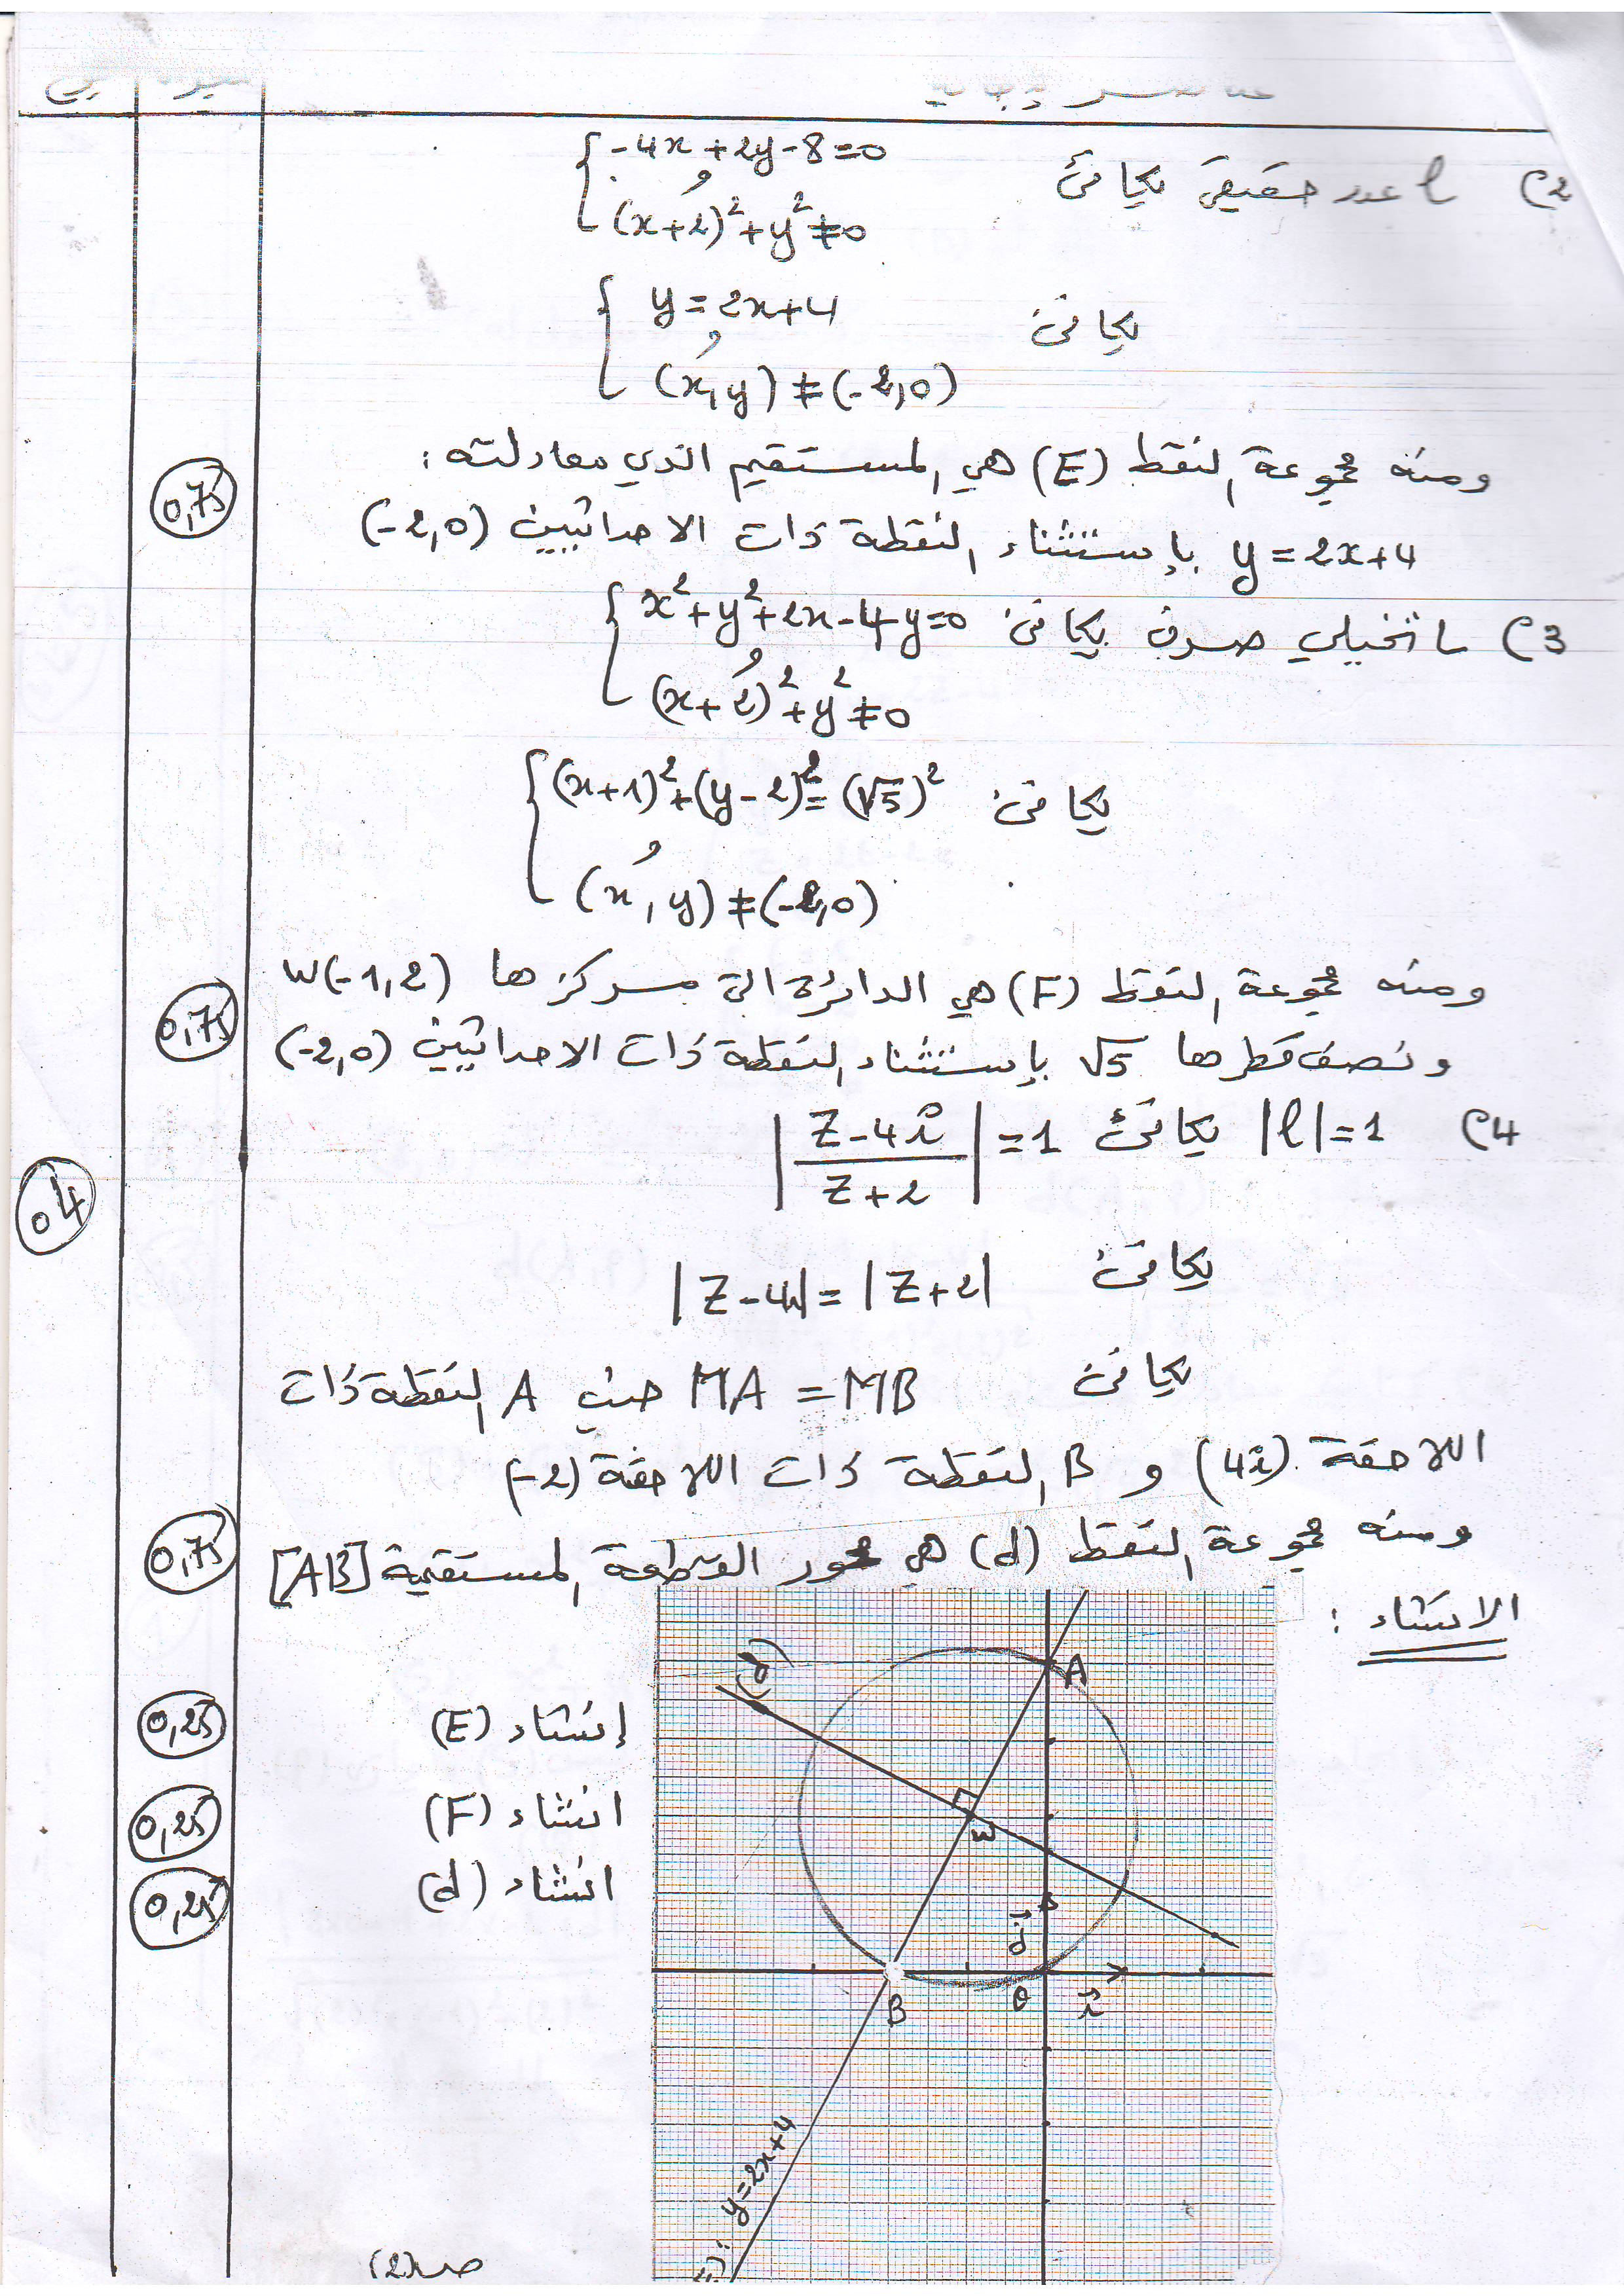 2) L عدد حقيقي يكافئ { -4x+2y-8=0 و (x+2)²+y²≠0
يكافئ { y=2x+4 و (x,y)≠(-2,0)
ومنه مجموعة النقط (E) هي المستقيم الذي معادلته:
y=2x+4 بإستثناء النقطة ذات الاحداثيين (-2,0)
0,75
3) L تخيلي صرف يكافئ { x²+y²+2x-4y=0 و (x+2)²+y²≠0
يكافئ { (x+1)²+(y-2)²=(√5)² و (x,y)≠(-2,0)
ومنه مجموعة النقط (F) هي الدائرة التي مركزها W(-1,2)
ونصف قطرها √5 بإستثناء النقطة ذات الاحداثيين (-2,0)
0,75
4) |L|=1 يكافئ |(Z-4i)/(Z+2)|=1
04
يكافئ |Z-4i|=|Z+2|
يكافئ MA=MB حيث A النقطة ذات
اللاحقة (4i) و B النقطة ذات اللاحقة (-2)
ومنه مجموعة النقط (d) هي محور القطعة المستقيمة [AB]
0,75
الانشاء:
إنشاء (E)
0,25
انشاء (F)
0,25
انشاء (d)
0,25
(d)
A
W
j
B
O
i
y=2x+4
ص(2)